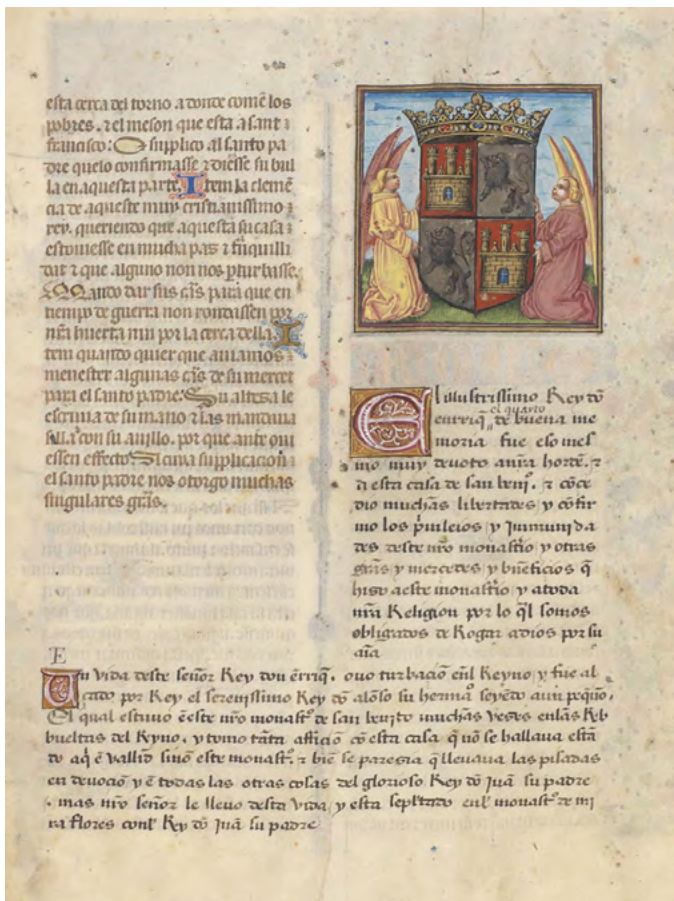 esta cerca del torno a donde comē los
pobres. ⁊ el meson que esta a sant
francisco: Suplico al santo pa
dre que lo confirmasse ⁊ diesse su bul
la en aquesta parte. Item la clemē
cia de aqueste muy cristianissimo
rey. queriendo que aquesta su casa
estouiesse en mucha paz ⁊ trāquilli
dat ⁊ que alguno non nos ꝑturbasse.
Mando dar sus cr̃as para que en
tiempo de guerra non rondassen por
nr̃a huerta nin por la cerca della. I
tem quando quier que auiamos
menester algunas cr̃as de su merced
para el santo padre: Su alteza le
escriuia de su mano ⁊ las mandaua
sellar con su anillo. por que ante oui
essen effecto: A cuya supplicacion
el santo padre nos otorgo muchas
singulares gr̃as.
El illustrissimo Rey dō
enrriq̄ el quarto de buena me
moria fue eso mes
mo muy deuoto a nr̃a hordē. ⁊
a esta casa de san beni͂. ⁊ cōce
dio muchas libertades y cōfir
mo los p̄uileios y Jnmunida
des deste nr̃o monast̃io y otras
gr̃as y mercedes y bn̄eficios q̄
hizo a este monast̃io y a toda
nr̃a Religion por lo q̄l somos
obligados de Rogar a dios por su
aīa
E
En vida deste señor Rey don ērriq̄. ouo turbaciō enl̄ Reyno y fue al
çado por Rey el serenissimo Rey dō alōso su herma͂o seyēdo aun peq̄no.
El qual estuuo ē este nr̃o monast͂o de san benito muchas veses en las Reb
bueltas del Reyno. y tomo tāta afficiō cō esta casa q̄ nō se hallaua estā
do aq̄ ē vallid̄ sinō este monast͂. ⁊ biē se paresia q̄ lleuaua las pisadas
en deuociō y ē todas las otras cosas del glorioso Rey dō Juā su padre
. mas nr̃o señor le lleuo desta vida y esta sepl̄tado enl̄ monast͂ de mi
ra flores conl̄ Rey dō Juā su padre